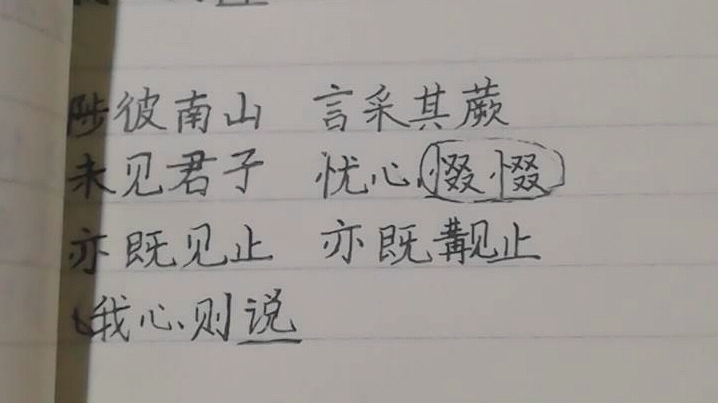 陟彼南山 言采其蕨
未见君子 忧心惙惙
亦既见止 亦既觏止
我心则说